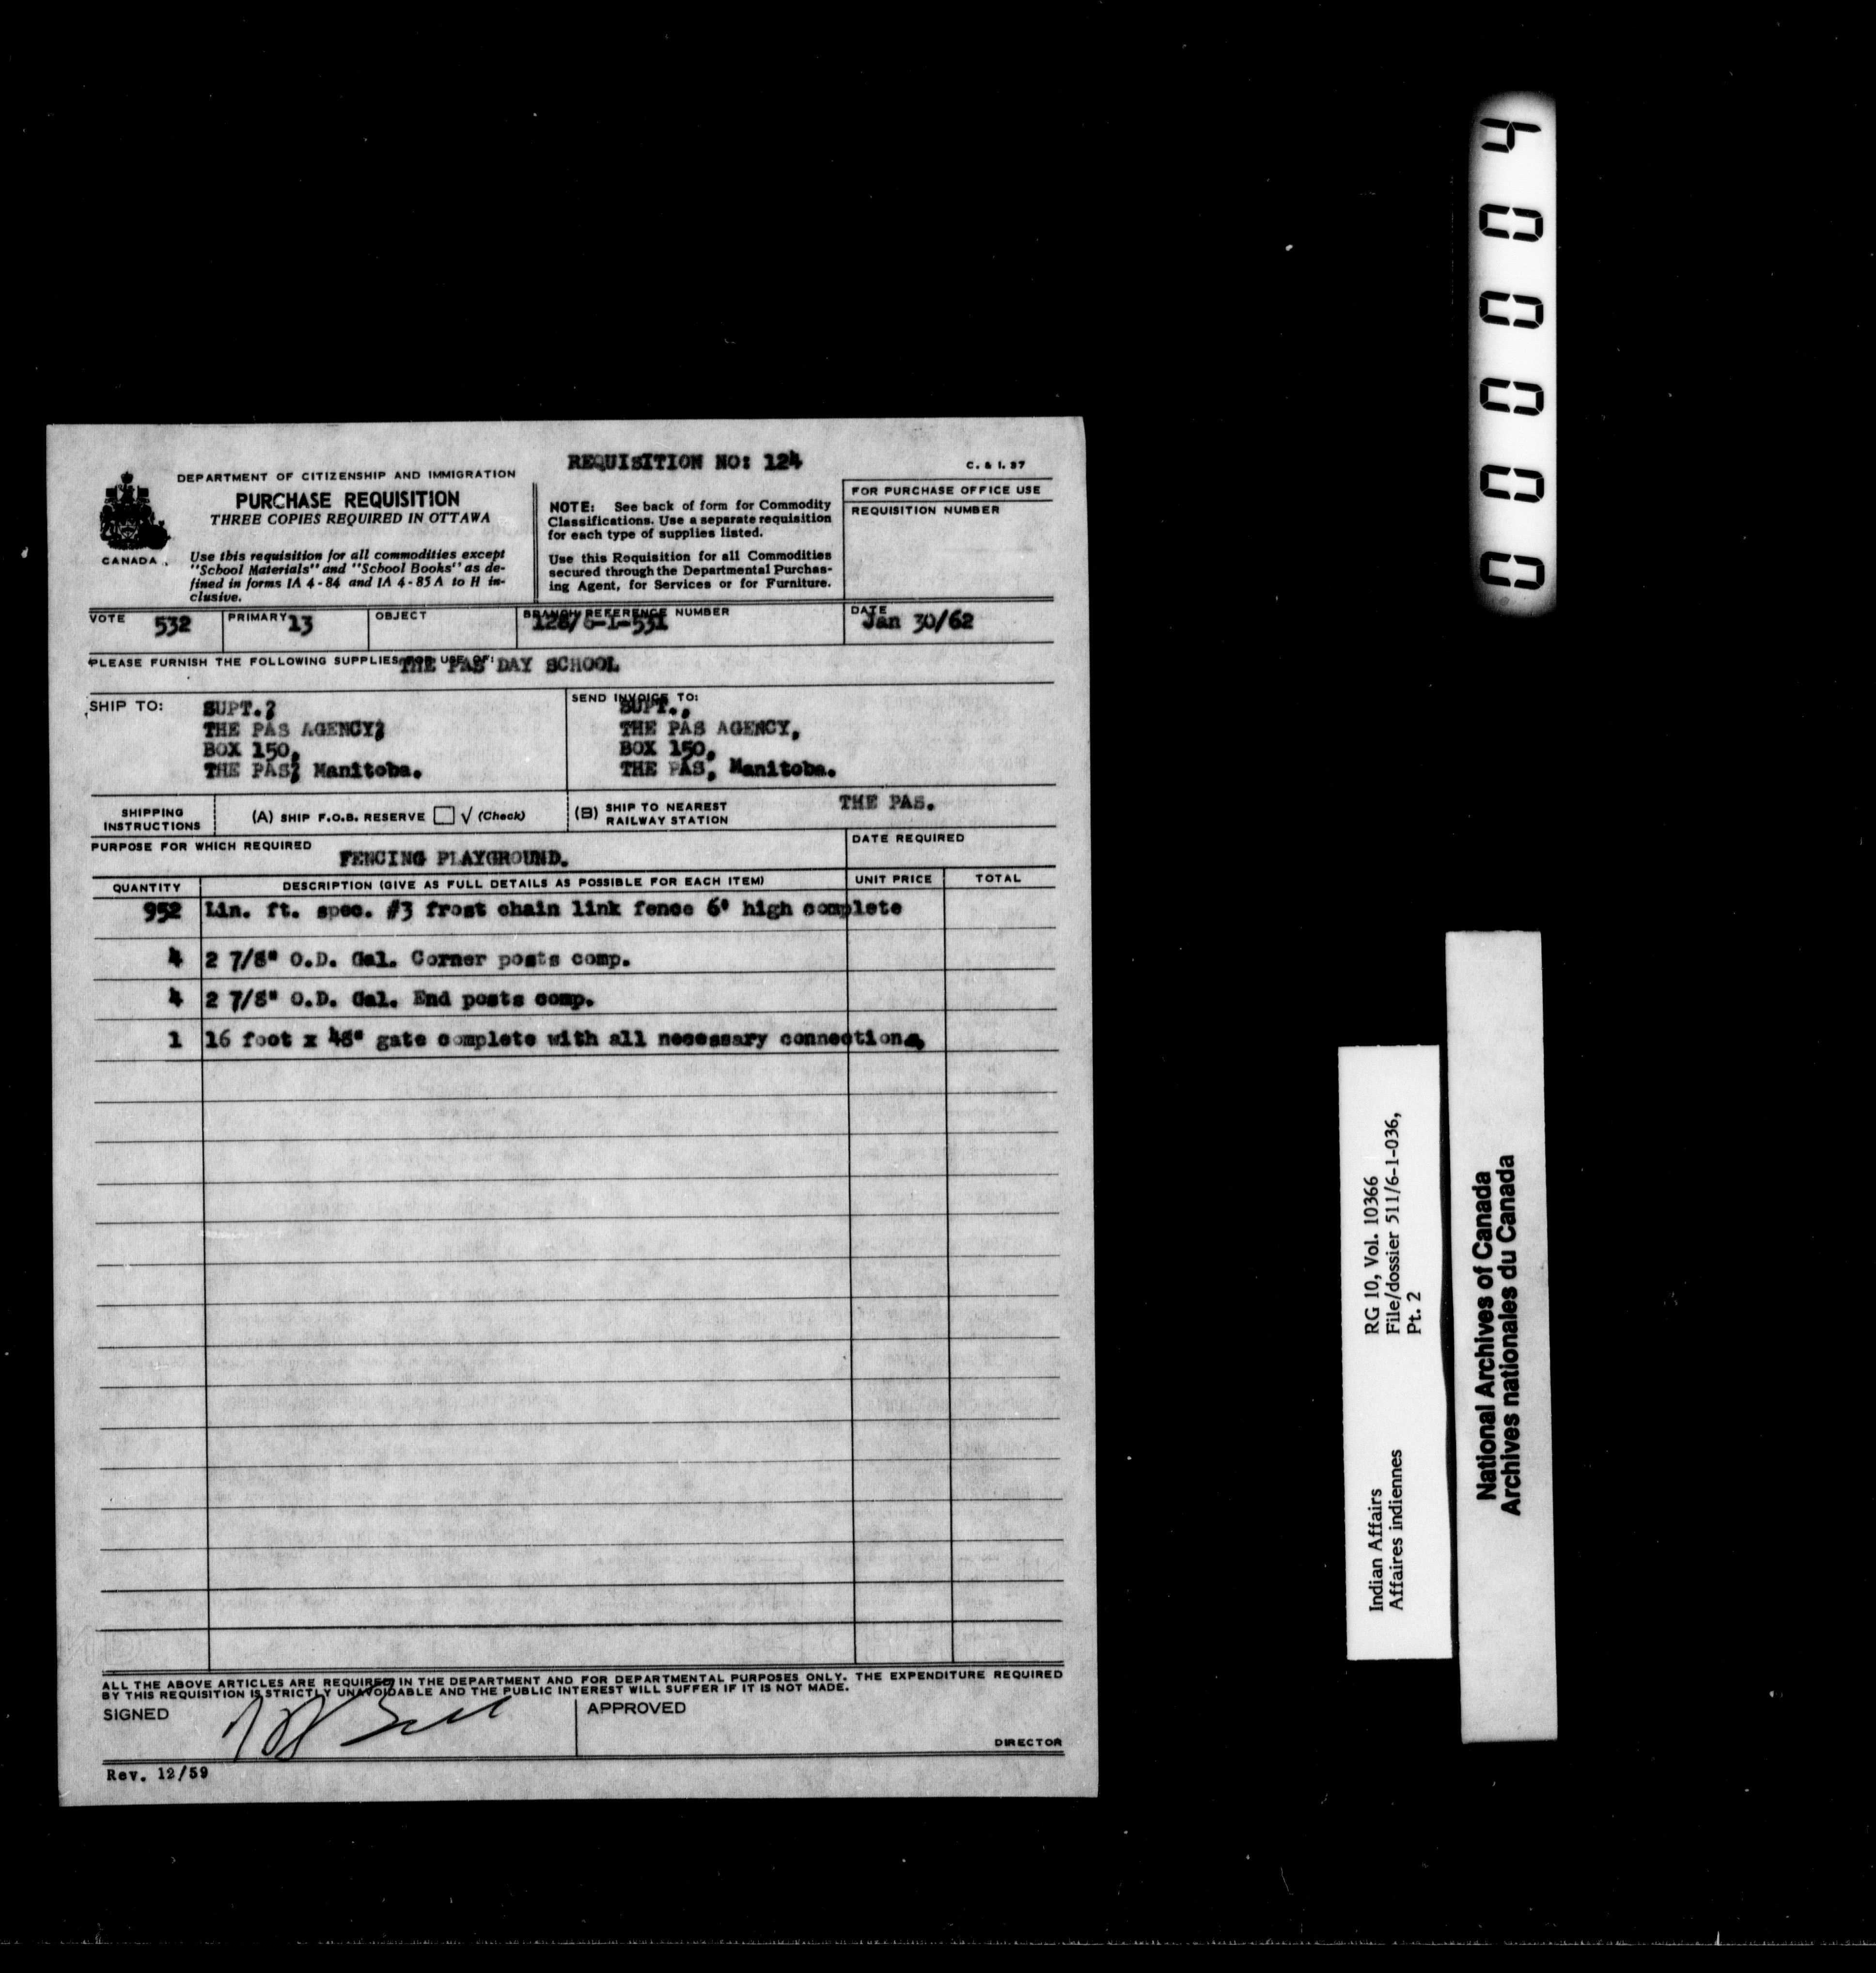 REQUISITION NO: 124
C. & I. 37
DEPARTMENT OF CITIZENSHIP AND IMMIGRATION
PURCHASE REQUISITION
THREE COPIES REQUIRED IN OTTAWA
CANADA
Use this requisition for all commodities except
"School Materials" and "School Books" as de-
fined in forms IA 4-84 and IA 4-85 A to H in-
clusive.
NOTE: See back of form for Commodity
Classifications. Use a separate requisition
for each type of supplies listed.
Use this Requisition for all Commodities
secured through the Departmental Purchas-
ing Agent, for Services or for Furniture.
FOR PURCHASE OFFICE USE
REQUISITION NUMBER
VOTE 532 PRIMARY 13 OBJECT BRANCH REFERENCE NUMBER 128/6-1-531 DATE Jan 30/62
PLEASE FURNISH THE FOLLOWING SUPPLIES FOR USE OF: THE PAS DAY SCHOOL
SHIP TO: SUPT.,
THE PAS AGENCY,
BOX 150,
THE PAS, Manitoba.
SEND INVOICE TO:
SUPT.,
THE PAS AGENCY,
BOX 150,
THE PAS, Manitoba.
SHIPPING INSTRUCTIONS
(A) SHIP F.O.B. RESERVE √ (Check)
(B) SHIP TO NEAREST RAILWAY STATION THE PAS.
PURPOSE FOR WHICH REQUIRED FENCING PLAYGROUND.
DATE REQUIRED
QUANTITY DESCRIPTION (GIVE AS FULL DETAILS AS POSSIBLE FOR EACH ITEM) UNIT PRICE TOTAL
952 Lin. ft. spec. #3 frost chain link fence 6' high complete
4 2 7/8" O.D. Gal. Corner posts comp.
4 2 7/8" O.D. Gal. End posts comp.
1 16 foot x 48" gate complete with all necessary connections,
ALL THE ABOVE ARTICLES ARE REQUIRED IN THE DEPARTMENT AND FOR DEPARTMENTAL PURPOSES ONLY. THE EXPENDITURE REQUIRED
BY THIS REQUISITION IS STRICTLY UNAVOIDABLE AND THE PUBLIC INTEREST WILL SUFFER IF IT IS NOT MADE.
SIGNED
APPROVED
DIRECTOR
Rev. 12/59
000004
Indian Affairs RG 10, Vol. 10366
Affaires indiennes File/dossier 511/6-1-036,
Pt. 2
National Archives of Canada
Archives nationales du Canada